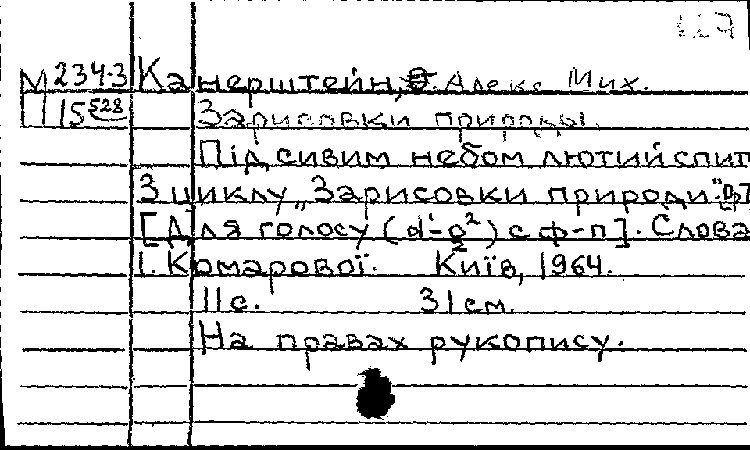 117
М 234-3 Канерштейн, Алекс. Мих.
П 15 528 Зарисовки природы.
Під сивим небом лютий спит
З циклу „Зарисовки природи".
[Для голосу (d¹-g²) с ф-п]. Слова
І. Комарової. Київ, 1964.
11 с. 31 см.
На правах рукопису.